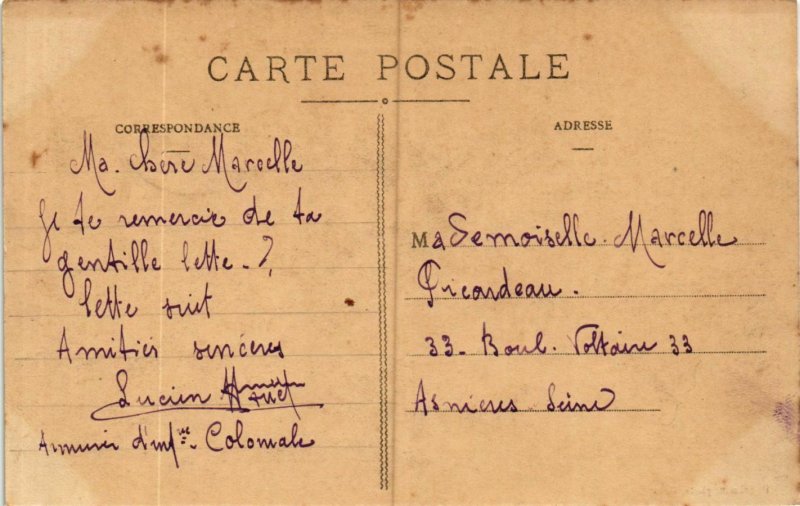 CARTE POSTALE
CORRESPONDANCE
Ma. chère Marcelle
Je te remercie de ta
gentille lette. ?
lette suit
Amitiés sincères
Lucien
Armurier d'infrie Coloniale
ADRESSE
Mademoiselle. Marcelle
Picardeau.
33. Boul. Voltaire 33
Asnieres. Seine